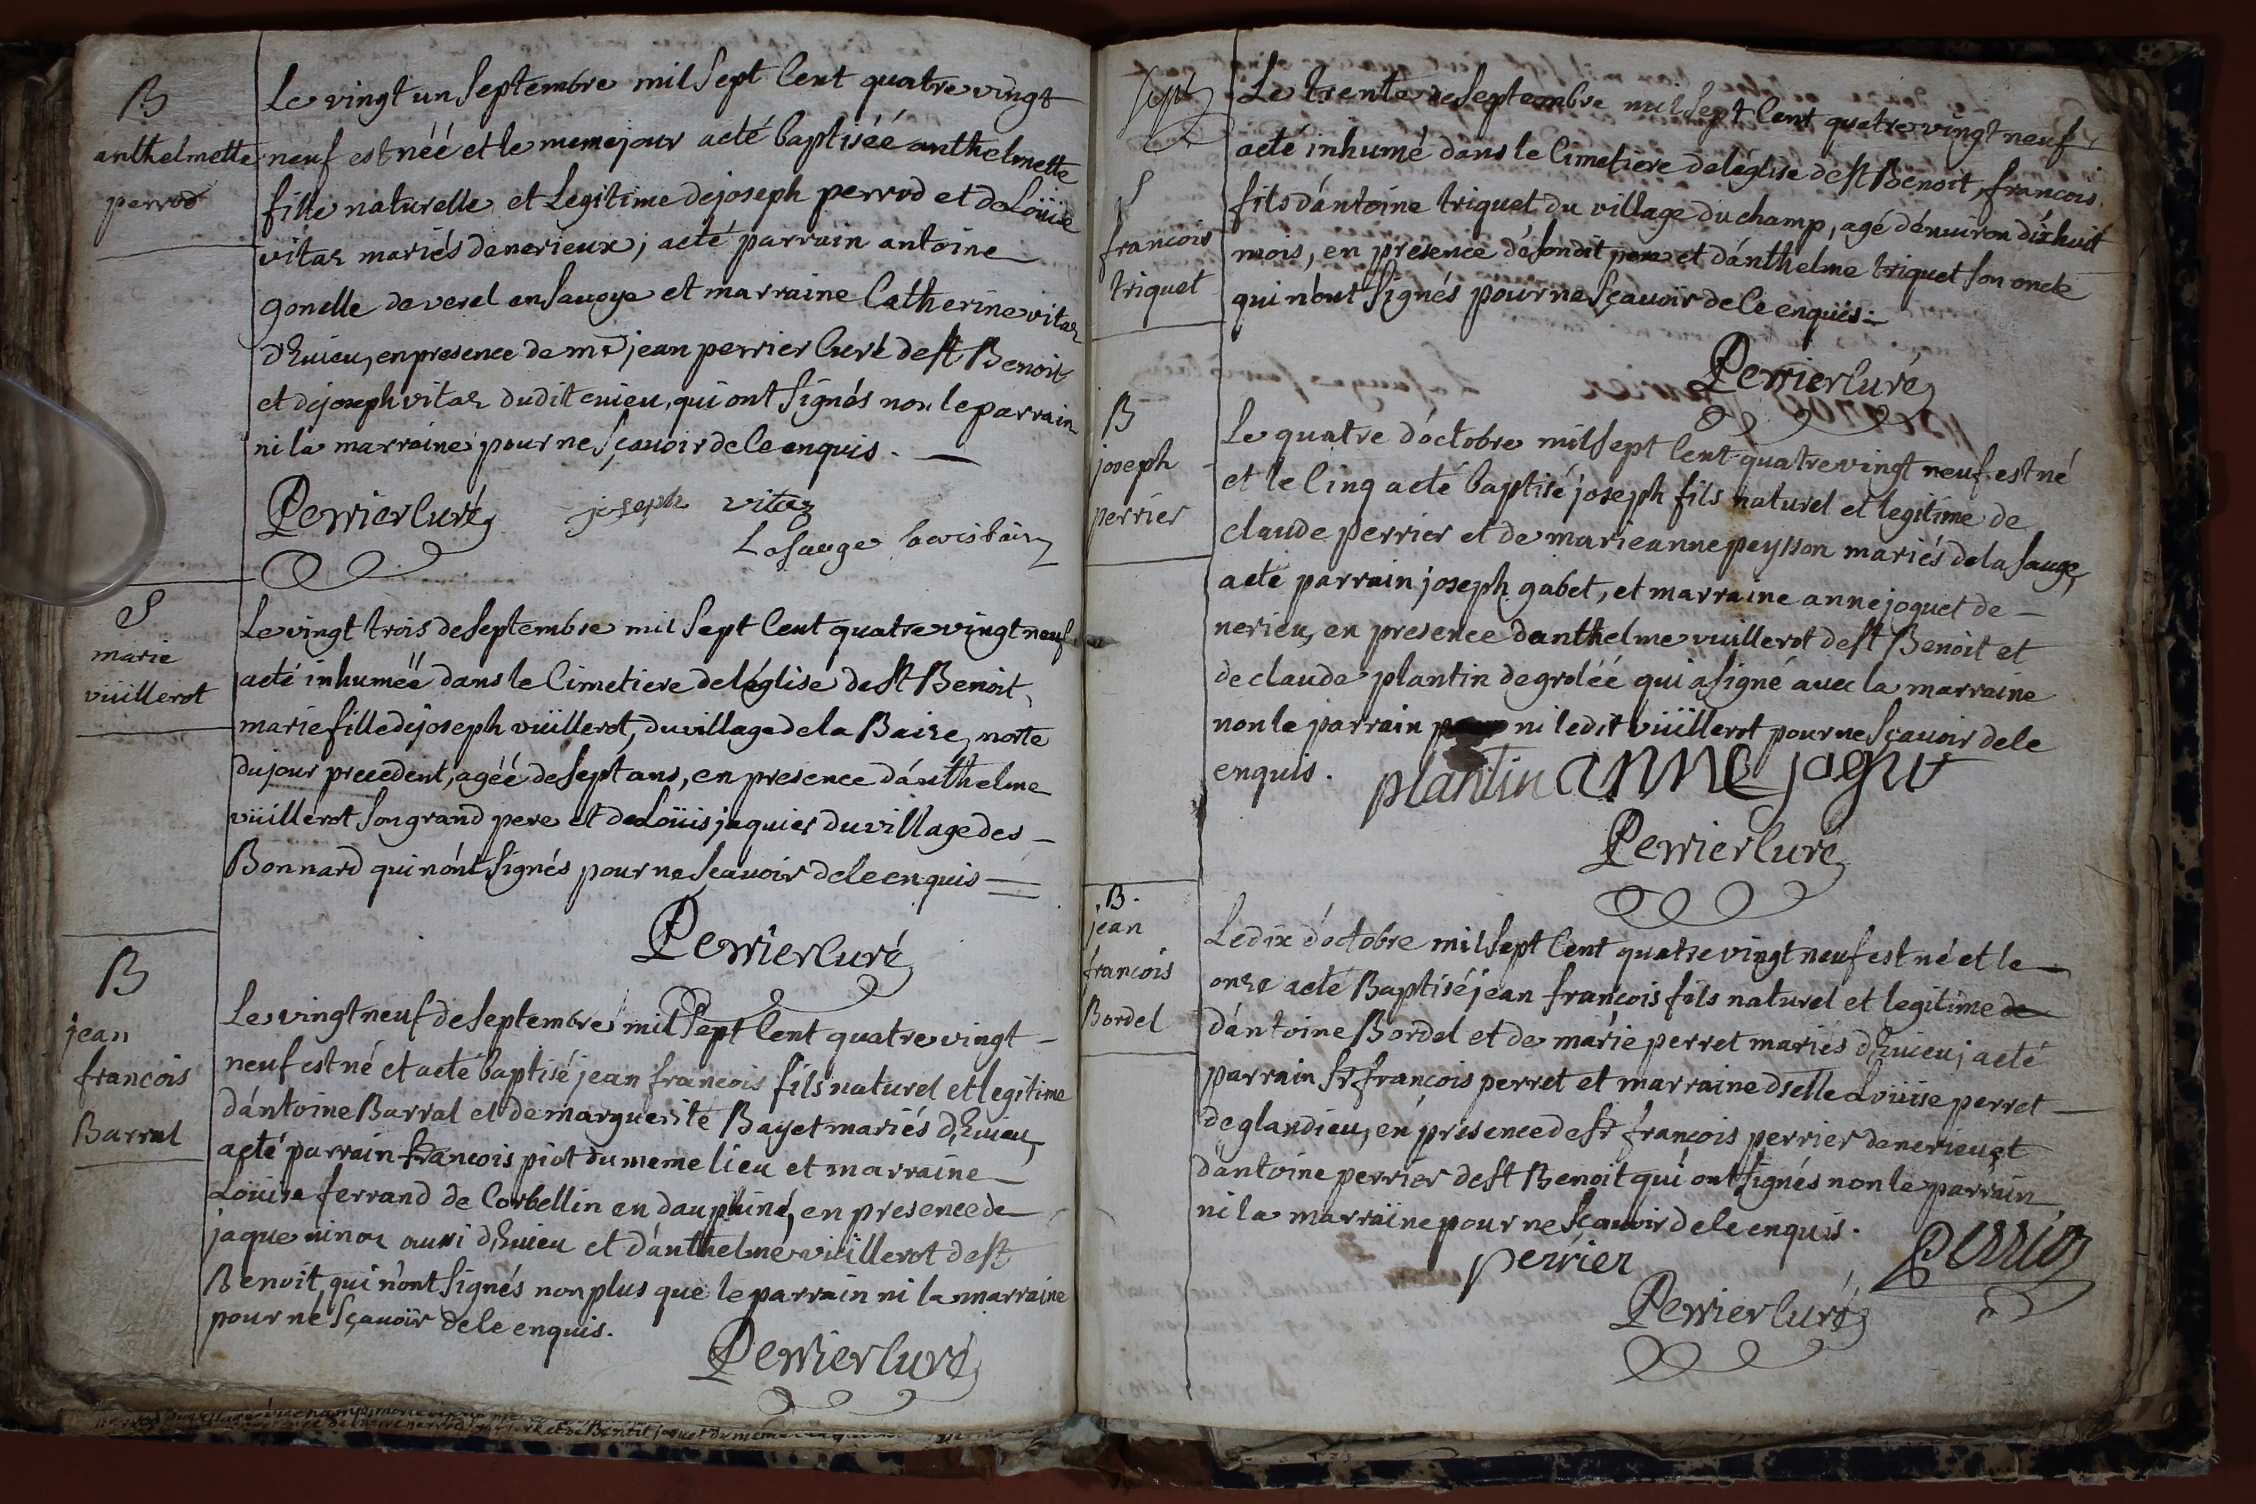 B
anthelmette
perrod
Le vingt un Septembre mil Sept Cent quatre vingt
neuf est néé et le meme jour acté baptiséé anthelmette
fille naturelle et Legitime de joseph perrod et de Loüise
vitaz mariés de nerieux; acté parrain antoine
gonelle de verel en Savoye et marraine Catherine vitaz
d'Euieu, en presence de mr jean perrier Curé de st Benoit
et de joseph vitaz dudit euieu, qui ont Signés non le parrain
ni la marraine pour ne Sçavoir de Ce enquis.
Perrier Curé joseph vitaz
Lasauge
S
marie
vüillerot
Le vingt trois de Septembre mil Sept Cent quatre vingt neuf
acté inhuméë dans le Cimetiere de léglise de St Benoit,
marie fille de joseph vüillerot, du village de la Baize, morte
du jour precedent, agéé de Sept ans, en presence d'anthelme
vüillerot Son grand pere et de Loüis jaquier du village des
Bonnard qui n'ont Signés pour ne Sçavoir de Ce enquis
Perrier Curé
B
jean
francois
Barral
Le vingt neuf de Septembre mil Sept Cent quatre vingt
neuf est né et acté baptisé jean francois fils naturel et legitime
d'antoine Barral et de marguerite Bayet mariés d'Euieu,
acté parrain francois piot du meme lieu et marraine
Loüise ferrand de Corbellin en dauphiné, en presence de
jaque ninoz aussi d'Euieu et d'anthelme vüillerot de st
Benoit, qui n'ont Signés non plus que le parrain ni la marraine
pour ne Sçavoir de Ce enquis.
Perrier Curé
Seph
S
francois
triquet
Le trente de Septembre mil Sept Cent quatre vingt neuf
acté inhumé dans le Cimetiere de léglise de St Benoit, francois
fils d'antoine triquet du village du champ, agé d'environ dix huit
mois, en presence de Sondit pere et d'anthelme triquet Son oncle
qui n'ont Signés pour ne Sçavoir de Ce enquis
Perrier Curé
B
joseph
perrier
Le quatre d'octobre mil Sept Cent quatre vingt neuf est né
et le Cinq acté baptisé joseph fils naturel et legitime de
claude perrier et de marie anne peysson mariés de la Sauge,
acté parrain joseph gabet, et marraine anne joquet de
nerieu, en presence danthelme vuillerot de St Benoit et
de claude plantin de groléé qui a Signé avec la marraine
non le parrain ni ledit vüillerot pour ne Sçavoir de Ce
enquis. plantin anne joqut
Perrier Curé
B.
jean
francois
Bordel
Le dix d'octobre mil Sept Cent quatre vingt neuf est né et le
onze acté Baptisé jean francois fils naturel et legitime de
d'antoine Bordel et de marie perret mariés d'Euieu; acté
parrain sr francois perret et marraine dselle Loüise perret
de glandieu, en présence de sr françois perrier de nerieu et
d'antoine perrier de St Benoit qui ont Signés non le parrain
ni la marraine pour ne Sçavoir de Ce enquis.
perrier Perrier
Perrier Curé